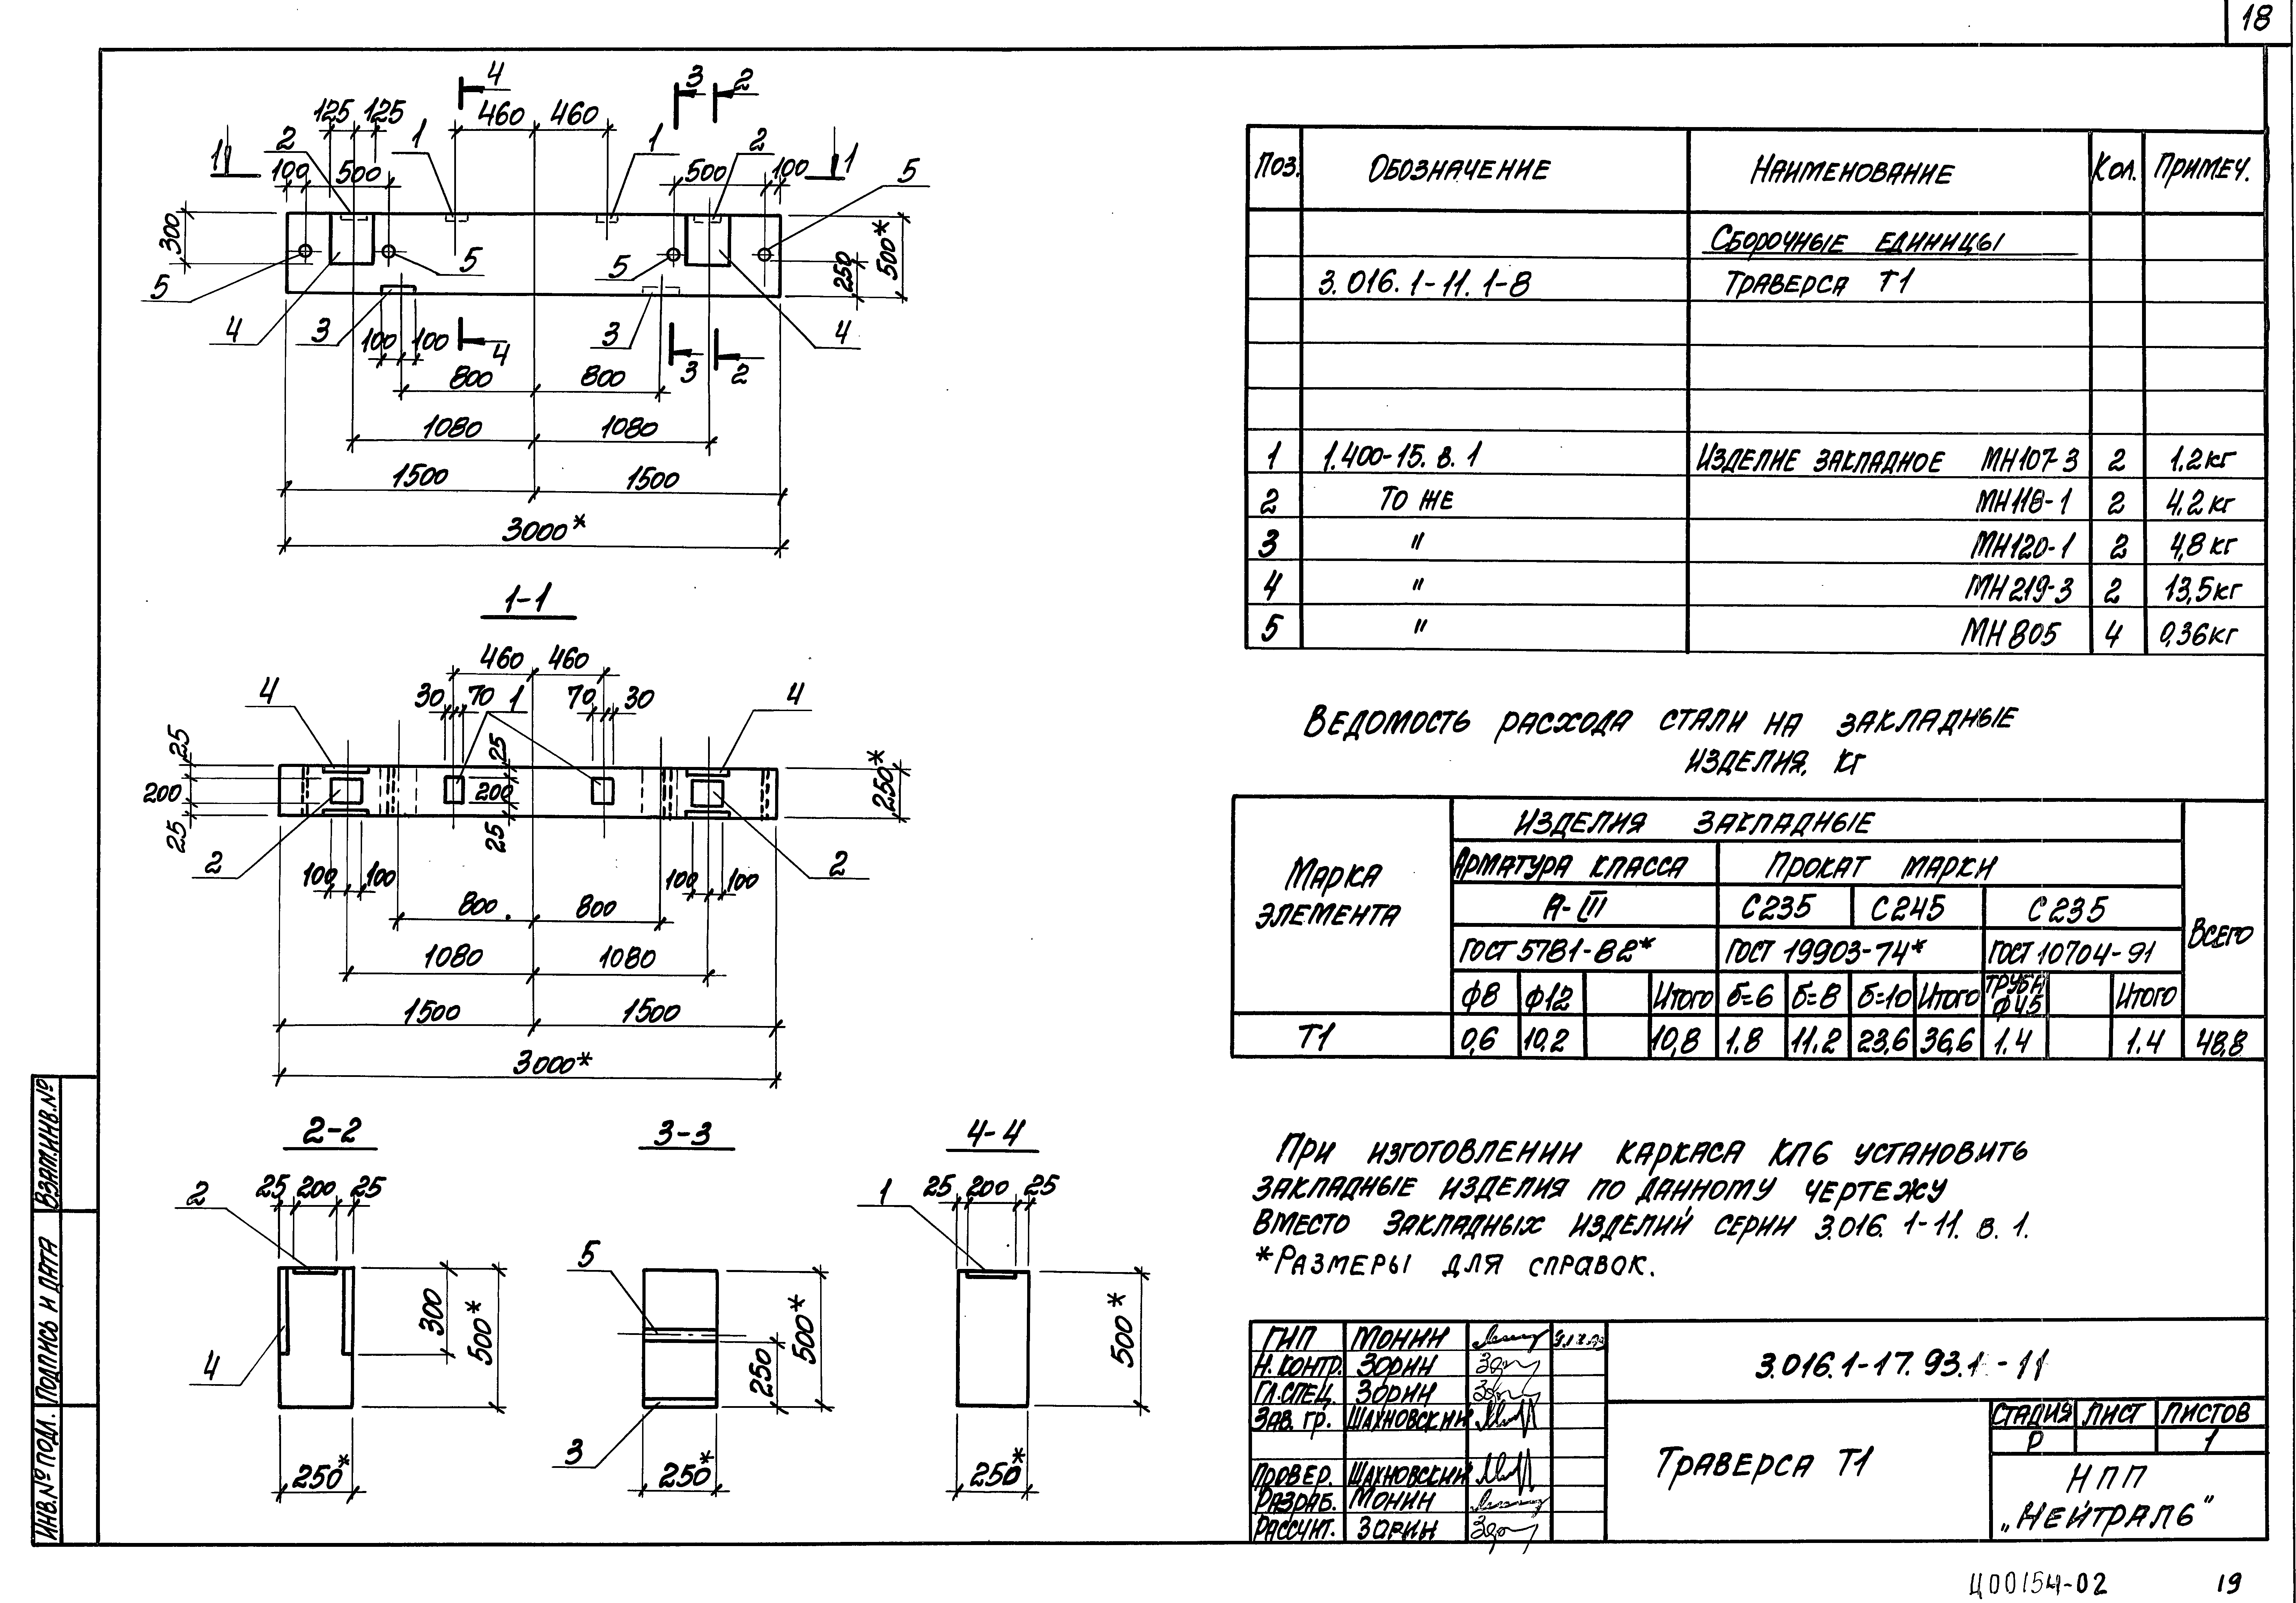 18
4 3 2
125 125 460 460
2 1 1 2
1 1
100 500 500 100 5
300 500* 250
5 5 5
4 3 100 100 4 3 4
3 2
800 800
1080 1080
1500 1500
3000*
1-1
460 460
4 30 70 1 70 30 4
25 25
200 200 250*
25 25
2 100 100 100 100 2
800 800
1080 1080
1500 1500
3000*
2-2 3-3 4-4
2 25 200 25
4 300 500*
250*
5 500* 250
3 250*
1 25 200 25
500*
250*
Поз. Обозначение Наименование Кол. Примеч.
Сборочные единицы
3.016.1-11.1-8 Траверса Т1
1 1.400-15.в.1 Изделие закладное МН107-3 2 1,2кг
2 То же МН118-1 2 4,2кг
3 " МН120-1 2 4,8кг
4 " МН219-3 2 13,5кг
5 " МН805 4 0,36кг
Ведомость расхода стали на закладные
изделия, кг
Марка элемента
Изделия закладные
Всего
Арматура класса Прокат марки
А-III С235 С245 С235
ГОСТ 5781-82* ГОСТ 19903-74* ГОСТ 10704-91
ф8 ф12 Итого б=6 б=8 б=10 Итого Труба ф45 Итого
Т1 0,6 10,2 10,8 1.8 11.2 23,6 36,6 1.4 1.4 48,8
При изготовлении каркаса КП6 установить
закладные изделия по данному чертежу
вместо закладных изделий серии 3.016.1-11.в.1.
*Размеры для справок.
ГИП Монин
Н.контр. Зорин
Гл.спец. Зорин
Зав.гр. Шахновский
Провер. Шахновский
Разраб. Монин
Рассчит. Зорин
3.016.1-17.93.1-11
Траверса Т1
Стадия Лист Листов
Р 1
НПП
„Нейтраль"
Взам.инв.№
Подпись и дата
Инв.№ подл.
Ц00154-02 19